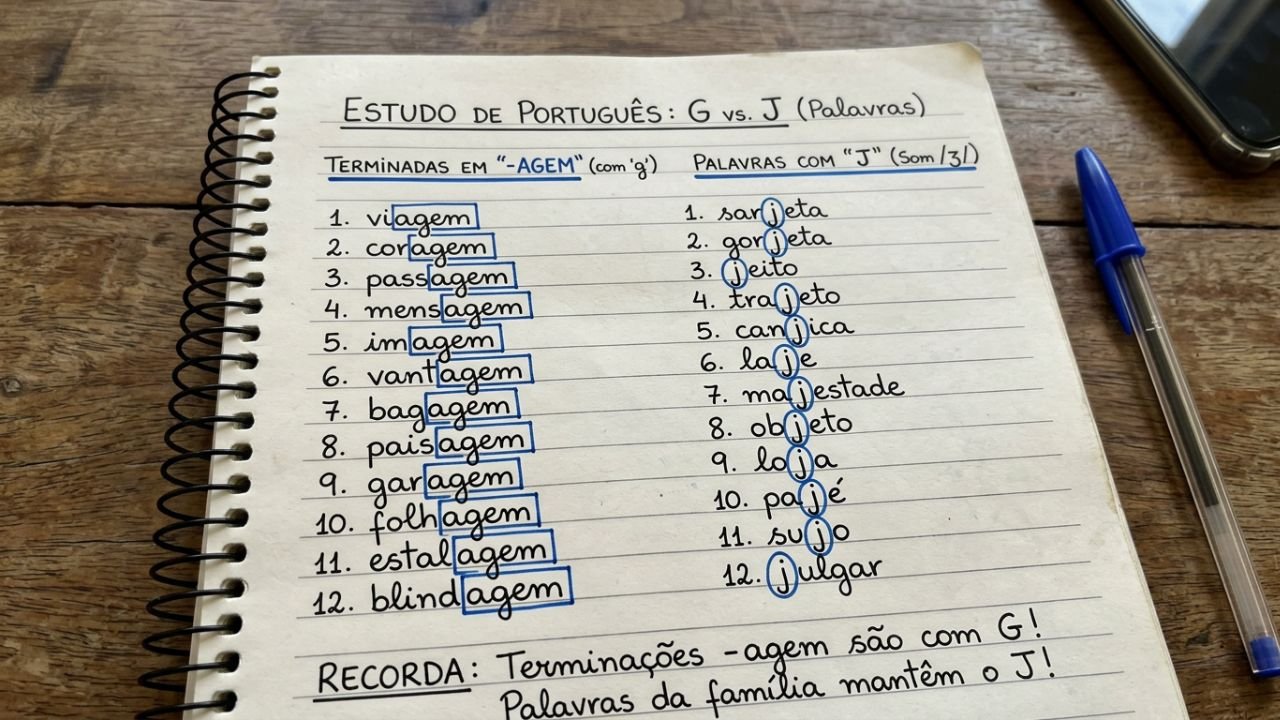 ESTUDO DE PORTUGUÊS: G vs. J (Palavras)
TERMINADAS EM "-AGEM" (com 'g')
1. viagem
2. coragem
3. passagem
4. mensagem
5. imagem
6. vantagem
7. bagagem
8. paisagem
9. garagem
10. folhagem
11. estalagem
12. blindagem
PALAVRAS COM "J" (Som /ʒ/)
1. sarjeta
2. gorjeta
3. jeito
4. trajeto
5. canjica
6. laje
7. majestade
8. objeto
9. loja
10. pajé
11. sujo
12. julgar
RECORDA: Terminações -agem são com G!
Palavras da família mantêm o J!